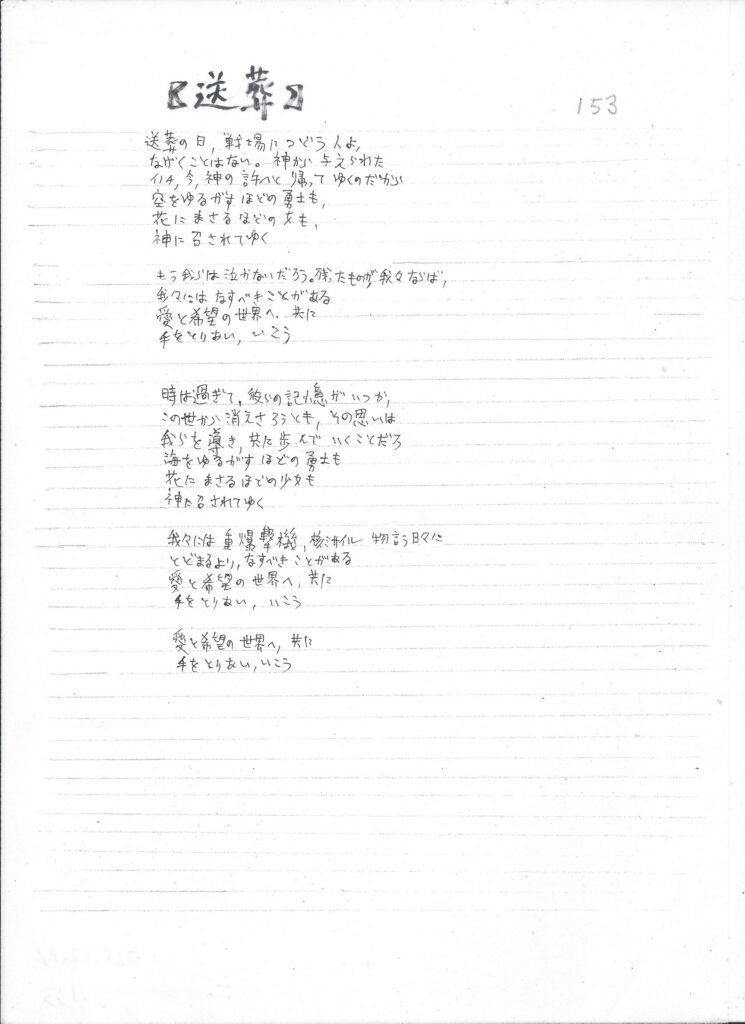 【送葬】
153
送葬の日，戦場につどう人よ，
なげくことはない。神から与えられた
イノチ，今，神の許へと帰ってゆくのだから
空をゆるがすほどの勇士も，
花にまさるほどの女も，
神に召されてゆく
もう我らは泣かないだろう。残ったものが我々ならば，
我々にはなすべきことがある
愛と希望の世界へ，共に
手をとりあい，いこう
時は過ぎて，彼らの記憶がいつか，
この世から消えさろうとも，その思いは
我らを導き，共に歩んでいくことだろ
海をゆるがすほどの勇士も
花にまさるほどの少女も
神に召されてゆく
我々には重爆撃機，核ミサイル 物言う日々に
とどまるより，なすべきことがある
愛と希望の世界へ，共に
手をとりあい，いこう
愛と希望の世界へ，共に
手をとりあい，いこう